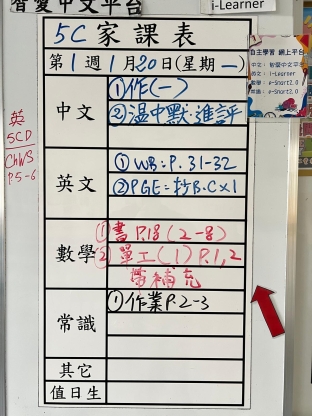 智愛中文平台
i-Learner
5C 家課表
第1週1月20日(星期一)
中文
①作(一)
②温中默、進評
英文
①WB:P.31-32
②PGE:抄B.C×1
數學
①書P.18(2-8)
②單工(1)P.1,2
帶補充
常識
①作業P.2-3
其它
值日生
英
5CD
ChWS
P.5-6
自主學習 網上平台
中文:智愛中文平台
英文:i-Learner
數學:e-Smart2.0
常識:e-Smart2.0